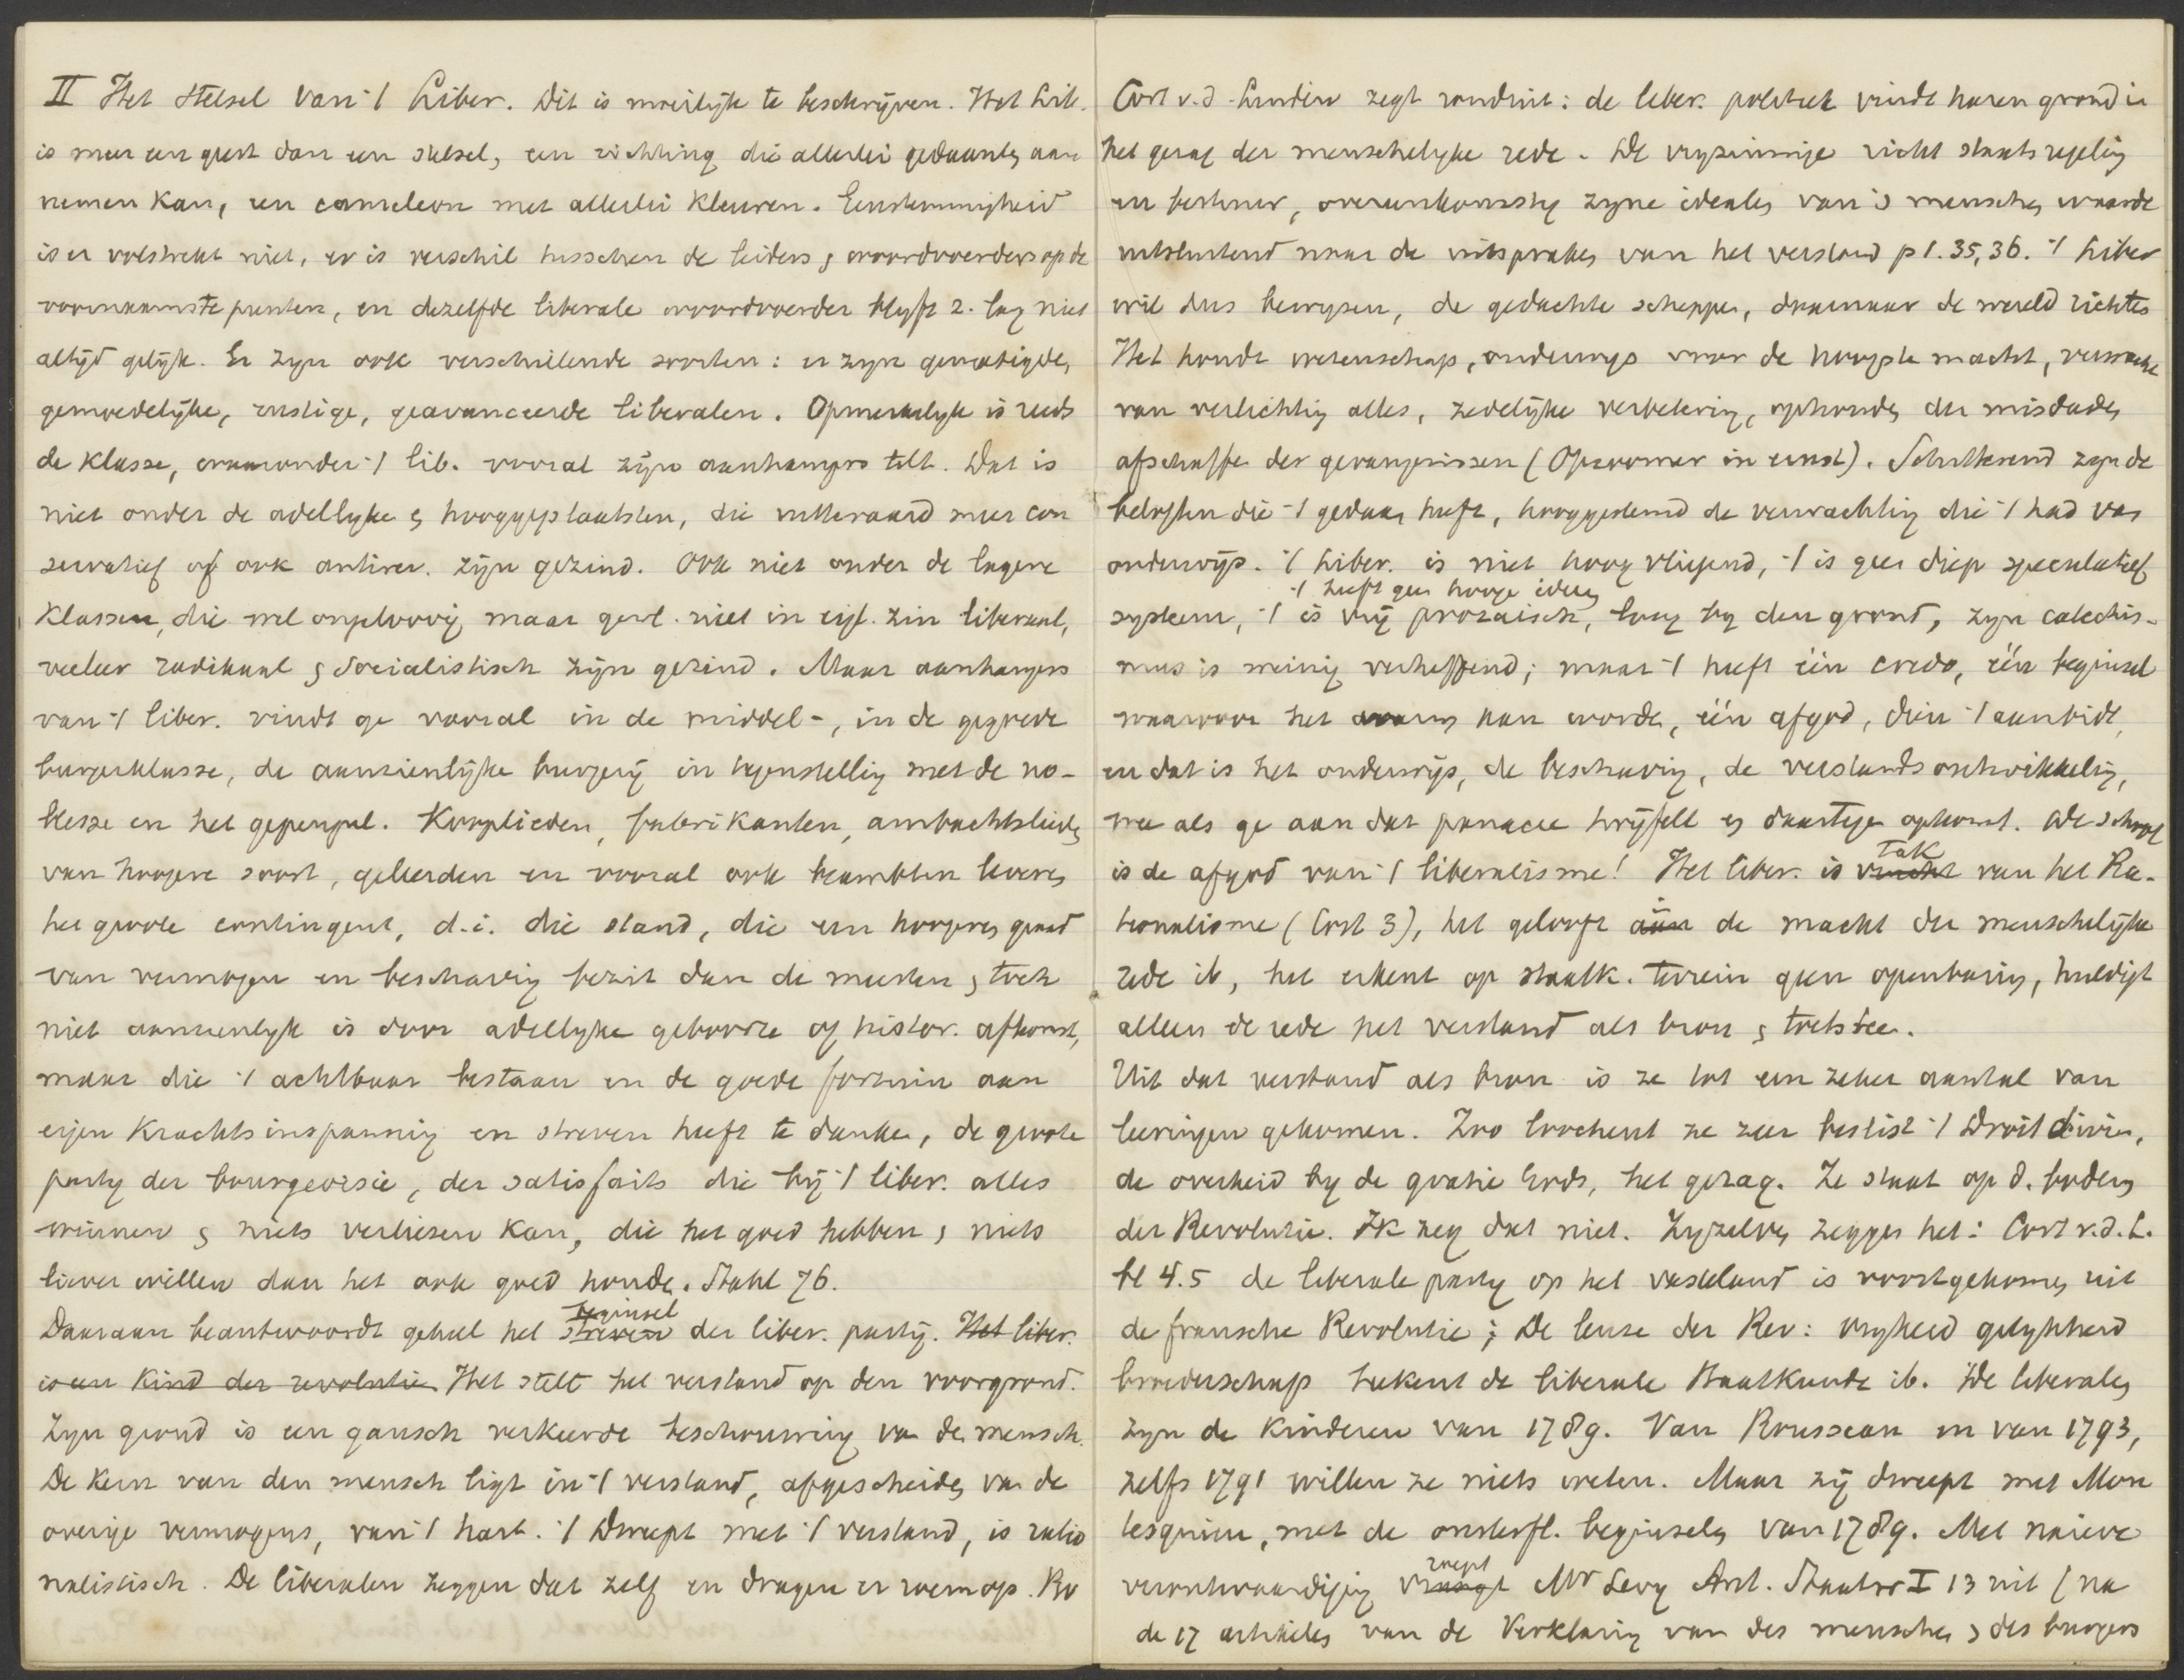 II Het stelsel van 't Liber. Dit is moeilijk te beschrijven. Het Lib.
is meer een geest dan een stelsel, een richting die allerlei gedaanten aan
nemen kan, een cameleon met allerlei kleuren. Eenstemmigheid
is er volstrekt niet, er is verschil tusschen de leiders & woordvoerders op de
voornaamste punten, en dezelfde liberale woordvoerder blyft z. lang niet
altijd gelijk. Er zyn ook verschillende soorten: er zyn gematigde,
gemoedelijke, rustige, geavanceerde liberalen. Opmerkelyk is reeds
de klasse, waaronder 't lib. vooral zijn aanhangers telt. Dat is
niet onder de adellyke & hooggeplaatsten, die uitteraard meer con
servatief of ook antirev. zijn gezind. Ook niet onder de lagere
klassen, die wel ongeloovig maar gewl. niet in eigl. zin liberaal,
veeleer radikaal & Socialistisch zijn gezind. Maar aanhangers
van 't liber. vindt ge vooral in de middel-, in de gegoede
burgerklasse, de aanzienlijke burgerij in tegenstelling met de no-
blesse en het gepeupel. Kooplieden, fabrikanten, ambachtslieden
van hoogere soort, geleerden en vooral ook beambten leveren
het groote contingent, d.i. die stand, die een hoogeren graad
van vermogen en beschaving bezit dan de meesten & toch
niet aanzienlyk is door adellyke geboorte of histor. afkomst,
maar die 't achtbaar bestaan en de goede fortuin aan
eigen krachtsinspanning en streven heeft te danken, de groote
party der bourgeoisie, der satisfaits die bij 't liber. alles
winnen & niets verliezen kan, die het goed hebben & niets
liever willen dan het ook goed houden. Stahl 76.
Daaraan beantwoordt geheel het streven beginsel der liber. partij. Het liber.
is een kind der revolutie Het stelt het verstand op den voorgrond.
Zyn grond is een gansch verkeerde beschouwing van den mensch.
De kern van den mensch ligt in 't verstand, afgescheiden van de
overige vermogens, van 't hart. 't Dweept met 't verstand, is ratio
nalistisch. De liberalen zeggen dat zelf en dragen er roem op.
Cort v.d. Linden zegt ronduit: de liber. politiek vindt haren grond in
het gezag der menschelyke rede. De vryzinnige richt staatsregeling
en bestuur, overeenkomstig zyne idealen van 's menschen waarde
uitsluitend naar de uitspraken van het verstand pl. 35, 36. 't Liber
wil dus bewyzen, de gedachte scheppen, daarnaar de wereld richten
Het houdt wetenschap, onderwys voor de hoogste macht, verwacht
van verlichting alles, zedelijke verbetering, ophouden der misdaden
afschaffen der gevangenissen (Opzoomer in ernst). Schitterend zyn de
beloften die 't gedaan heeft, hooggestemd de verwachting die 't had van
onderwijs. 't Liber. is niet hoog vliegend, 't is geen diep speculatief
't heeft geen hooge ideen
systeem, 't is vrij prozaisch, laag by den grond, zyn catechis-
mus is weinig verheffend; maar 't heeft één credo, één beginsel
waarvoor het warm kan worden, één afgod, dien 't aanbidt,
en dat is het onderwijs, de beschaving, de verstandsontwikkeling,
wee als ge aan dat panacee twijfelt en daartegen opkomt. De school
is de afgod van 't liberalisme! Het liber. is vrucht tak van het Ra-
tionalisme (Cort 3), het gelooft aan de macht der menschelijke
rede ib, het erkent op staatk. terrein geen openbaring, huldigt
alleen de rede het verstand als bron & toetssteen.
Uit dat verstand als bron is ze tot een zeker aantal van
leeringen gekomen. Zoo loochent ze zeer beslist 't Droit divin,
de overheid by de gratie Gods, het gezag. Ze staat op d. bodem
der Revolutie. Ik zeg dat niet. Zyzelven zeggen het: Cort v.d.L.
bl 4.5 de liberale party op het vasteland is voortgekomen uit
de fransche Revolutie; De leuze der Rev: vryheid gelykheid
broederschap teekent de liberale Staatkunde ib. De liberalen
zyn de kinderen van 1789. Van Rousseau en van 1793,
zelfs 1791 willen ze niets weten. Maar zij dweept met Mon
tesquieu, met de onsterfl. beginselen van 1789. Met naieve
verontwaardiging vraagt roept Mr Levy Ant. Staatsr I 13 uit (na
de 17 artikelen van de Verklaring van des menschen & des burgers